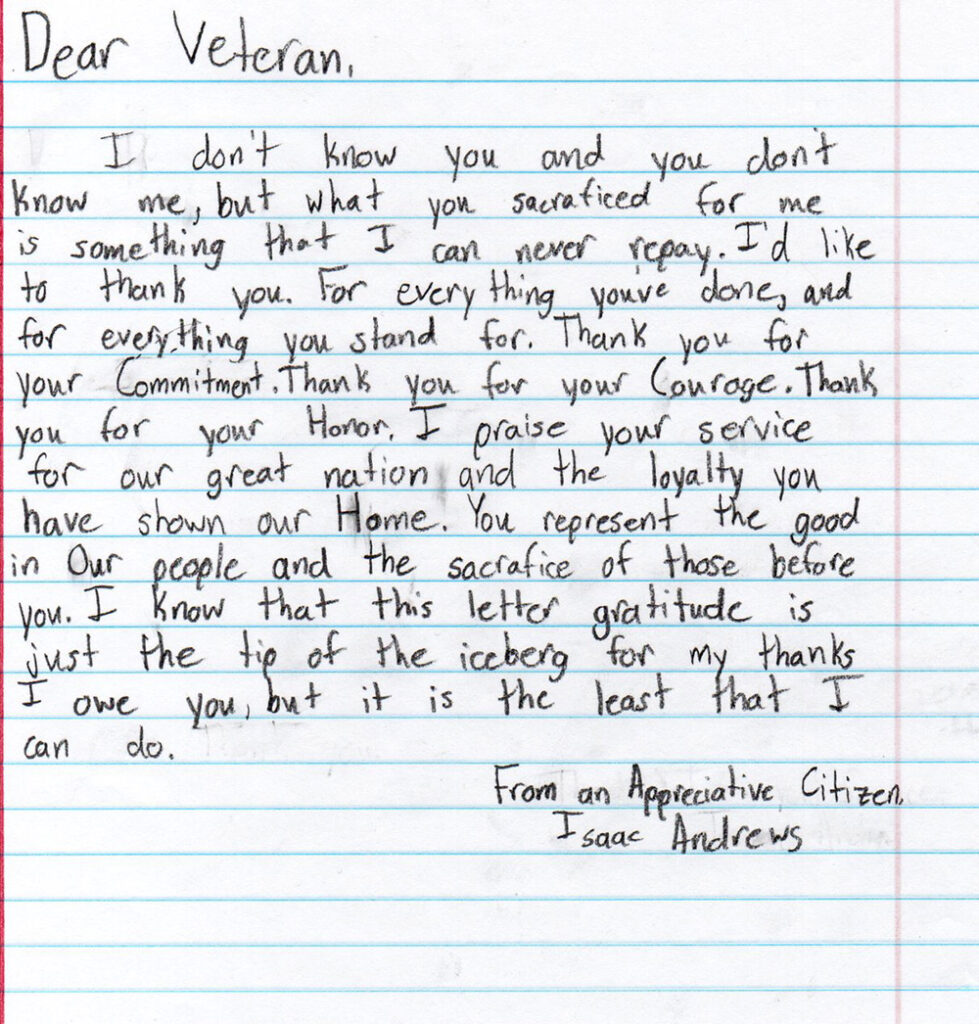 Dear Veteran,
I don't know you and you don't
know me, but what you sacraficed for me
is something that I can never repay. I'd like
to thank you. For every thing you've done, and
for everything you stand for. Thank you for
your Commitment. Thank you for your Courage. Thank
you for your Honor. I praise your service
for our great nation and the loyalty you
have shown our Home. You represent the good
in Our people and the sacrafice of those before
you. I know that this letter gratitude is
just the tip of the iceberg for my thanks
I owe you, but it is the least that I
can do.
From an Appreciative Citizen,
Isaac Andrews